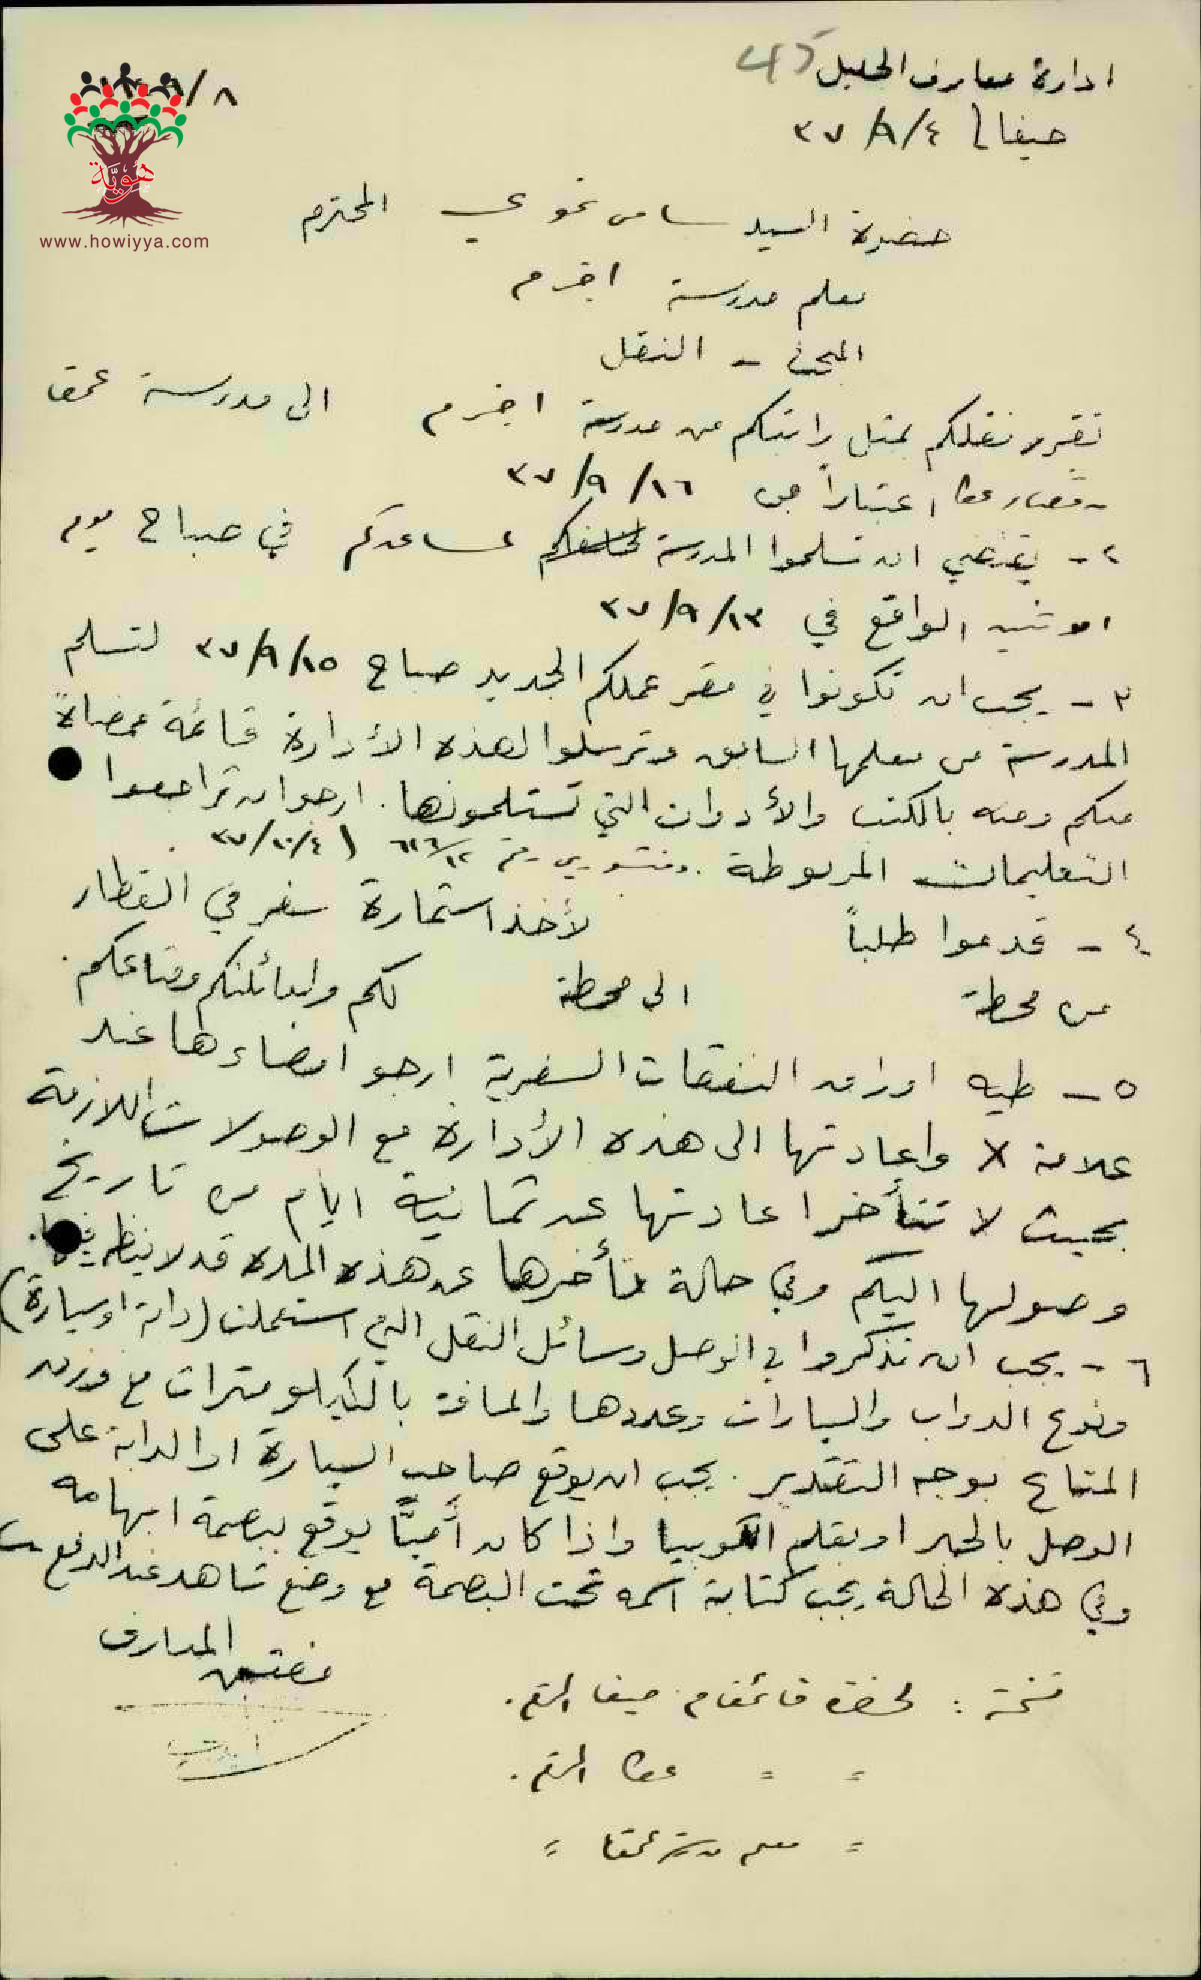 ادارة معارف الجليل 45
٨/
حيفا ٤/٩/٣٧
هوية
www.howiyya.com
حضرة السيد سامي المحترم
معلم مدرسة اجزم
المبحث - النقل
تقرر نقلكم بمثل راتبكم من مدرسة اجزم الى مدرسة عمقا
قضاء عكا اعتباراً من ١٦/٩/٣٧
٢ - يقتضي ان تسلموا المدرسة لمساعدكم في صباح يوم
الاثنين الواقع في ١٣/٩/٣٧
٣ - يجب ان تكونوا في مقر عملكم الجديد صباح ١٥/٩/٣٧ لتسلم
المدرسة من معلمها السابق وترسلوا لهذه الأدارة قائمة ممضاة
منكم ومنه بالكتب والأدوات التي تستلمونها. ارجو ان تراجعوا
التعليمات المربوطة ومنشوري رقم
٤ - قدموا طلباً لأخذ استمارة سفر في القطار
من محطة الى محطة لكم ولعائلتكم ومتاعكم.
٥ - طيه اوراق النفقات السفرية ارجو امضاءها عند
علامة X واعادتها الى هذه الأدارة مع الوصولات اللازمة
بحيث لا تتأخر اعادتها عن ثمانية ايام من تاريخ
وصولها اليكم وفي حالة تأخرها عن هذه المدة قد لا ينظر فيها.
٦ - يجب ان تذكروا في الوصل وسائل النقل التي استعملت (دابة او سيارة)
ونوع الدواب والسيارات وعددها والمسافة بالكيلومترات مع وزن
المتاع بوجه التقدير. يجب ان يوقع صاحب السيارة او الدابة على
الوصل بالحبر او بقلم الكوبيا واذا كان أمياً يوقع ببصمة ابهامه
وفي هذه الحالة يجب كتابة اسمه تحت البصمة مع وضع شاهد عند الدفع
مفتش المعارف
نسخة : لحضرة قائمقام حيفا المحترم.
= = عكا المحترم.
= معلم مدرسة عمقا =